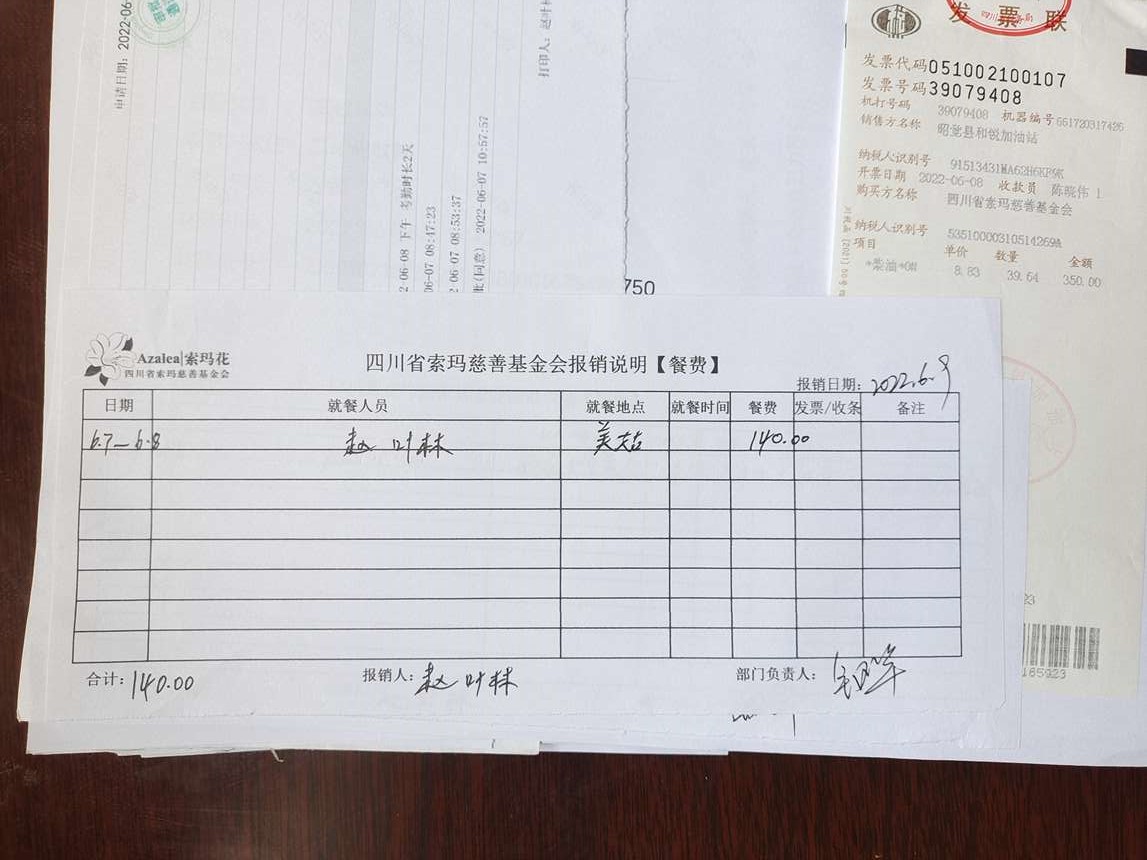 申请日期: 2022-06
打印人: 赵叶林
2-06-08 下午 考勤时长2天
06-07 08:47:23
2-06-07 08:53:37
批(同意) 2022-06-07 10:57:57
750
发票联
发票代码051002100107
发票号码39079408
机打号码 39079408 机器编号661720317426
销售方名称 昭觉县和锐加油站
纳税人识别号 91513431MA62H6KF9K
开票日期 2022-06-08 收款员 陈晓伟 1
购买方名称 四川省索玛慈善基金会
纳税人识别号 53510000310514269A
项目 单价 数量 金额
*柴油*0# 8.83 39.64 350.00
Azalea|索玛花
四川省索玛慈善基金会
四川省索玛慈善基金会报销说明【餐费】
报销日期: 2022.6.9
日期 就餐人员 就餐地点 就餐时间 餐费 发票/收条 备注
6.7—6.8 赵叶林 美姑 140.00
合计: 140.00 报销人: 赵叶林 部门负责人:
165923